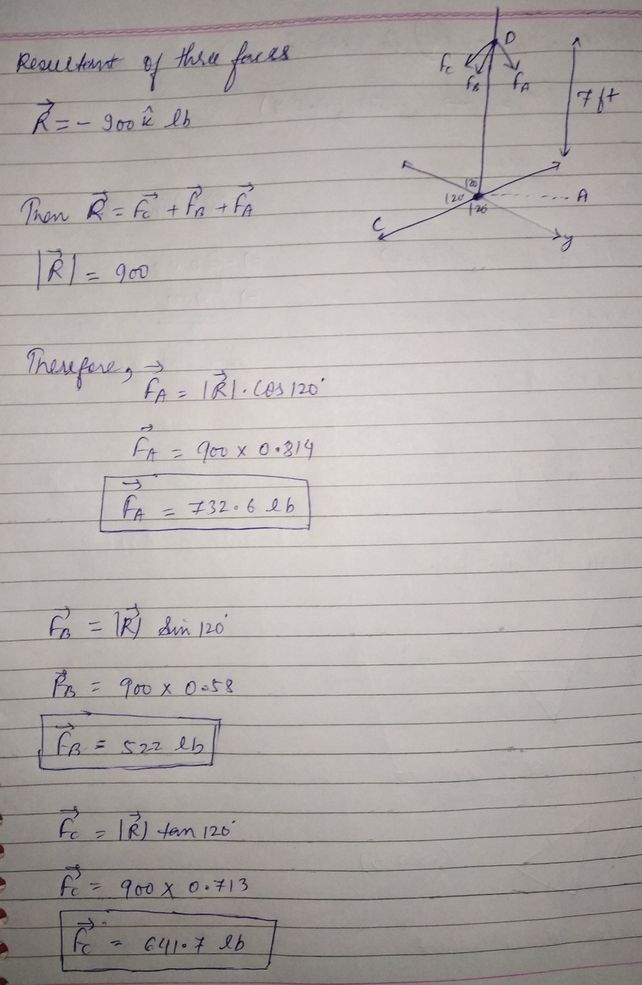 Resultant of three forces
R⃗ = - 900 k̂ lb
Then R⃗ = F⃗c + F⃗B + F⃗A
|R⃗| = 900
D
Fc
FB
FA
7ft
120
120
120
A
C
y
Therefore,
F⃗A = |R⃗| · Cos 120°
F⃗A = 900 x 0.814
F⃗A = 732.6 lb
F⃗B = |R⃗| Sin 120°
F⃗B = 900 x 0.58
F⃗B = 522 lb
F⃗c = |R⃗| tan 120°
F⃗c = 900 x 0.713
F⃗c = 641.7 lb